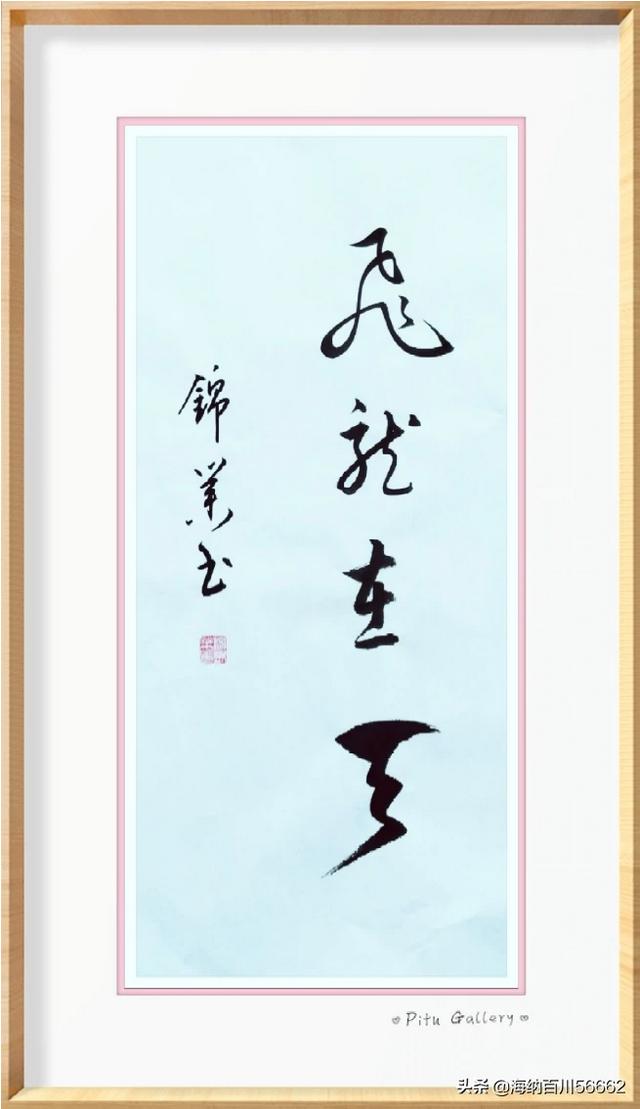 飛龍在天
錦業书
Pitu Gallery
头条 @海纳百川56662